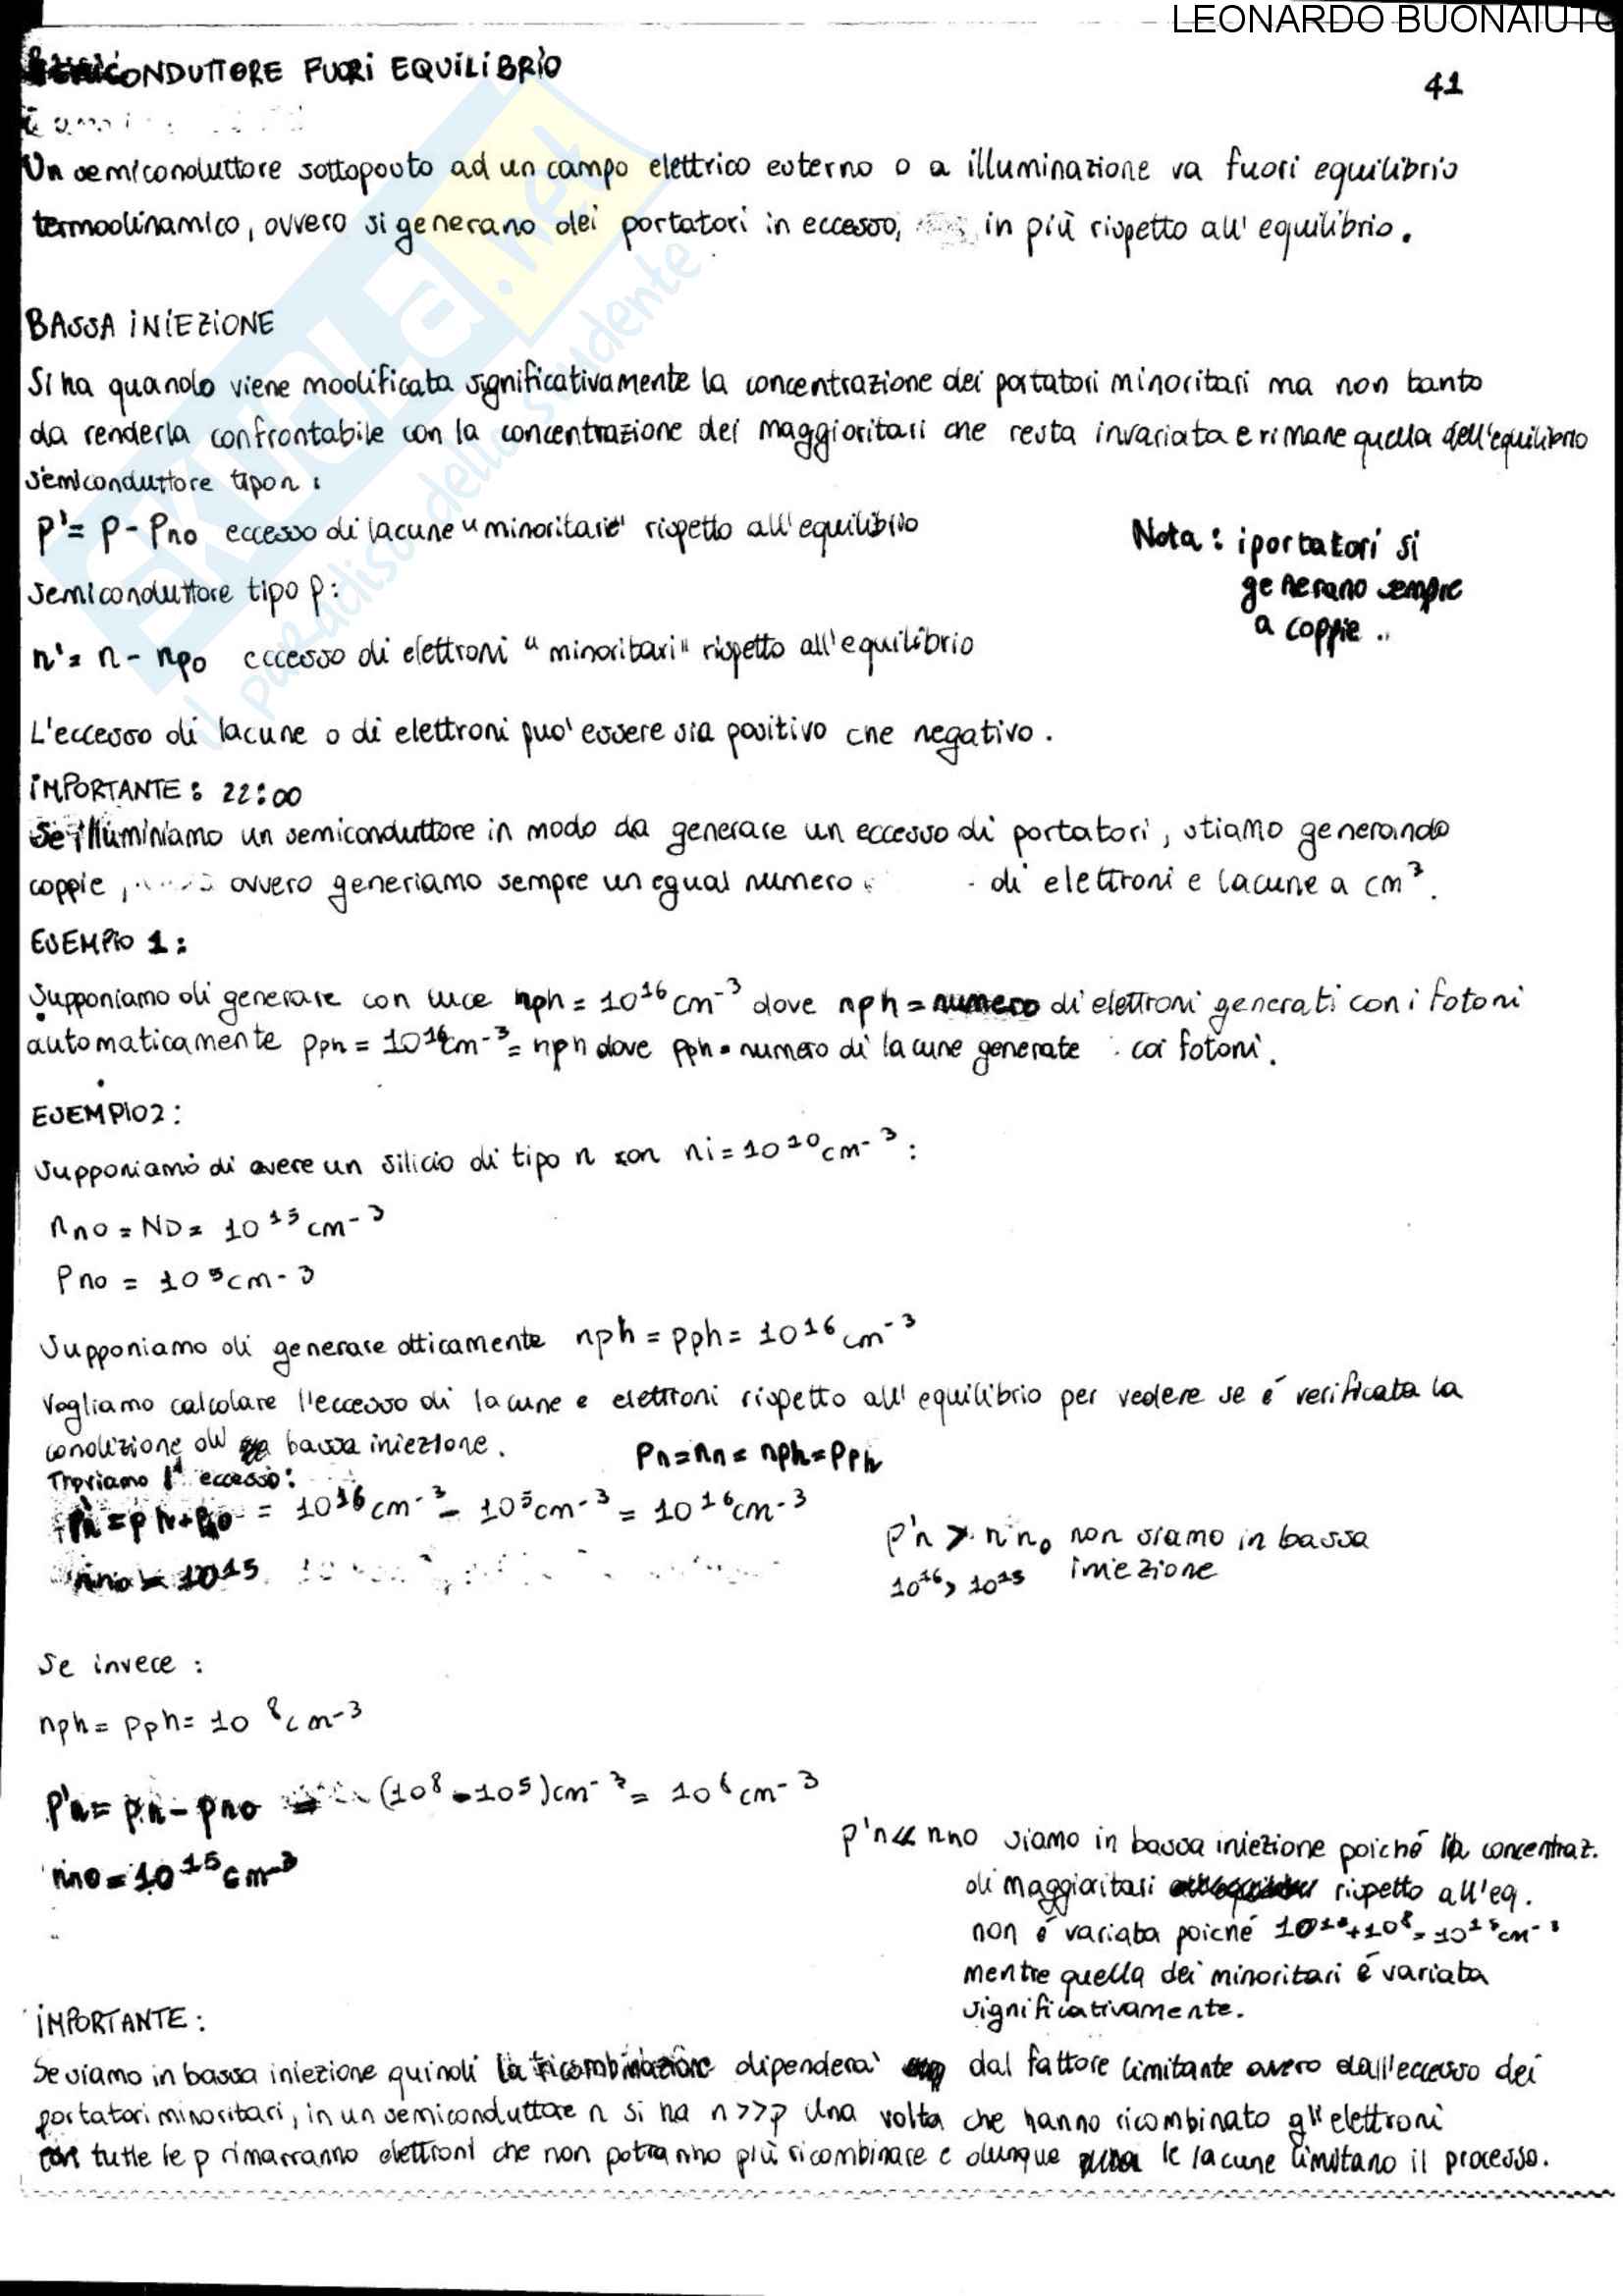 LEONARDO BUONAIUTO
SEMICONDUTTORE FUORI EQUILIBRIO
41
Un semiconduttore sottoposto ad un campo elettrico esterno o a illuminazione va fuori equilibrio
termodinamico, ovvero si generano dei portatori in eccesso, in più rispetto all'equilibrio.
BASSA INIEZIONE
Si ha quando viene modificata significativamente la concentrazione dei portatori minoritari ma non tanto
da renderla confrontabile con la concentrazione dei maggioritari che resta invariata e rimane quella dell'equilibrio
semiconduttore tipo n:
p' = p - pno eccesso di lacune "minoritarie" rispetto all'equilibrio
semiconduttore tipo p:
n' = n - npo eccesso di elettroni "minoritari" rispetto all'equilibrio
Nota: i portatori si
generano sempre
a coppie..
L'eccesso di lacune o di elettroni puo' essere sia positivo che negativo.
IMPORTANTE: 22:00
Se illuminiamo un semiconduttore in modo da generare un eccesso di portatori, stiamo generando
coppie, ovvero generiamo sempre un egual numero di elettroni e lacune a cm³.
ESEMPIO 1:
Supponiamo di generare con luce nph = 10¹⁶ cm⁻³ dove nph = numero di elettroni generati con i fotoni
automaticamente pph = 10¹⁶ cm⁻³ = nph dove pph = numero di lacune generate coi fotoni.
ESEMPIO 2:
Supponiamo di avere un silicio di tipo n con ni = 10¹⁰ cm⁻³:
nno = ND = 10¹⁵ cm⁻³
Pno = 10⁵ cm-3
Supponiamo di generare otticamente nph = pph = 10¹⁶ cm⁻³
Vogliamo calcolare l'eccesso di lacune e elettroni rispetto all'equilibrio per vedere se é verificata la
condizione di bassa iniezione.
Pn = nn = nph = Pph
Troviamo l'eccesso:
= 10¹⁶ cm⁻³ - 10⁵ cm⁻³ = 10¹⁶ cm⁻³
nno = 10¹⁵
p'n > n'no non siamo in bassa
10¹⁶ > 10¹⁵ iniezione
Se invece:
nph = pph = 10⁸ cm⁻³
P'n = pn - pno = (10⁸ - 10⁵) cm⁻³ = 10⁸ cm⁻³
nno = 10¹⁵ cm⁻³
p'n << nno siamo in bassa iniezione poiché la concentraz.
di maggioritari rispetto all'eq.
non é variata poiché + 10⁸ = 10¹⁵ cm⁻³
mentre quella dei minoritari é variata
significativamente.
IMPORTANTE:
Se siamo in bassa iniezione quindi la ricombinazione dipendera' dal fattore limitante ovvero dall'eccesso dei
portatori minoritari, in un semiconduttore n si ha n >> p Una volta che hanno ricombinato gli elettroni
con tutte le p rimarranno elettroni che non potranno più ricombinare e dunque le lacune limitano il processo.
SKUOLA.net
il paradiso dello studente